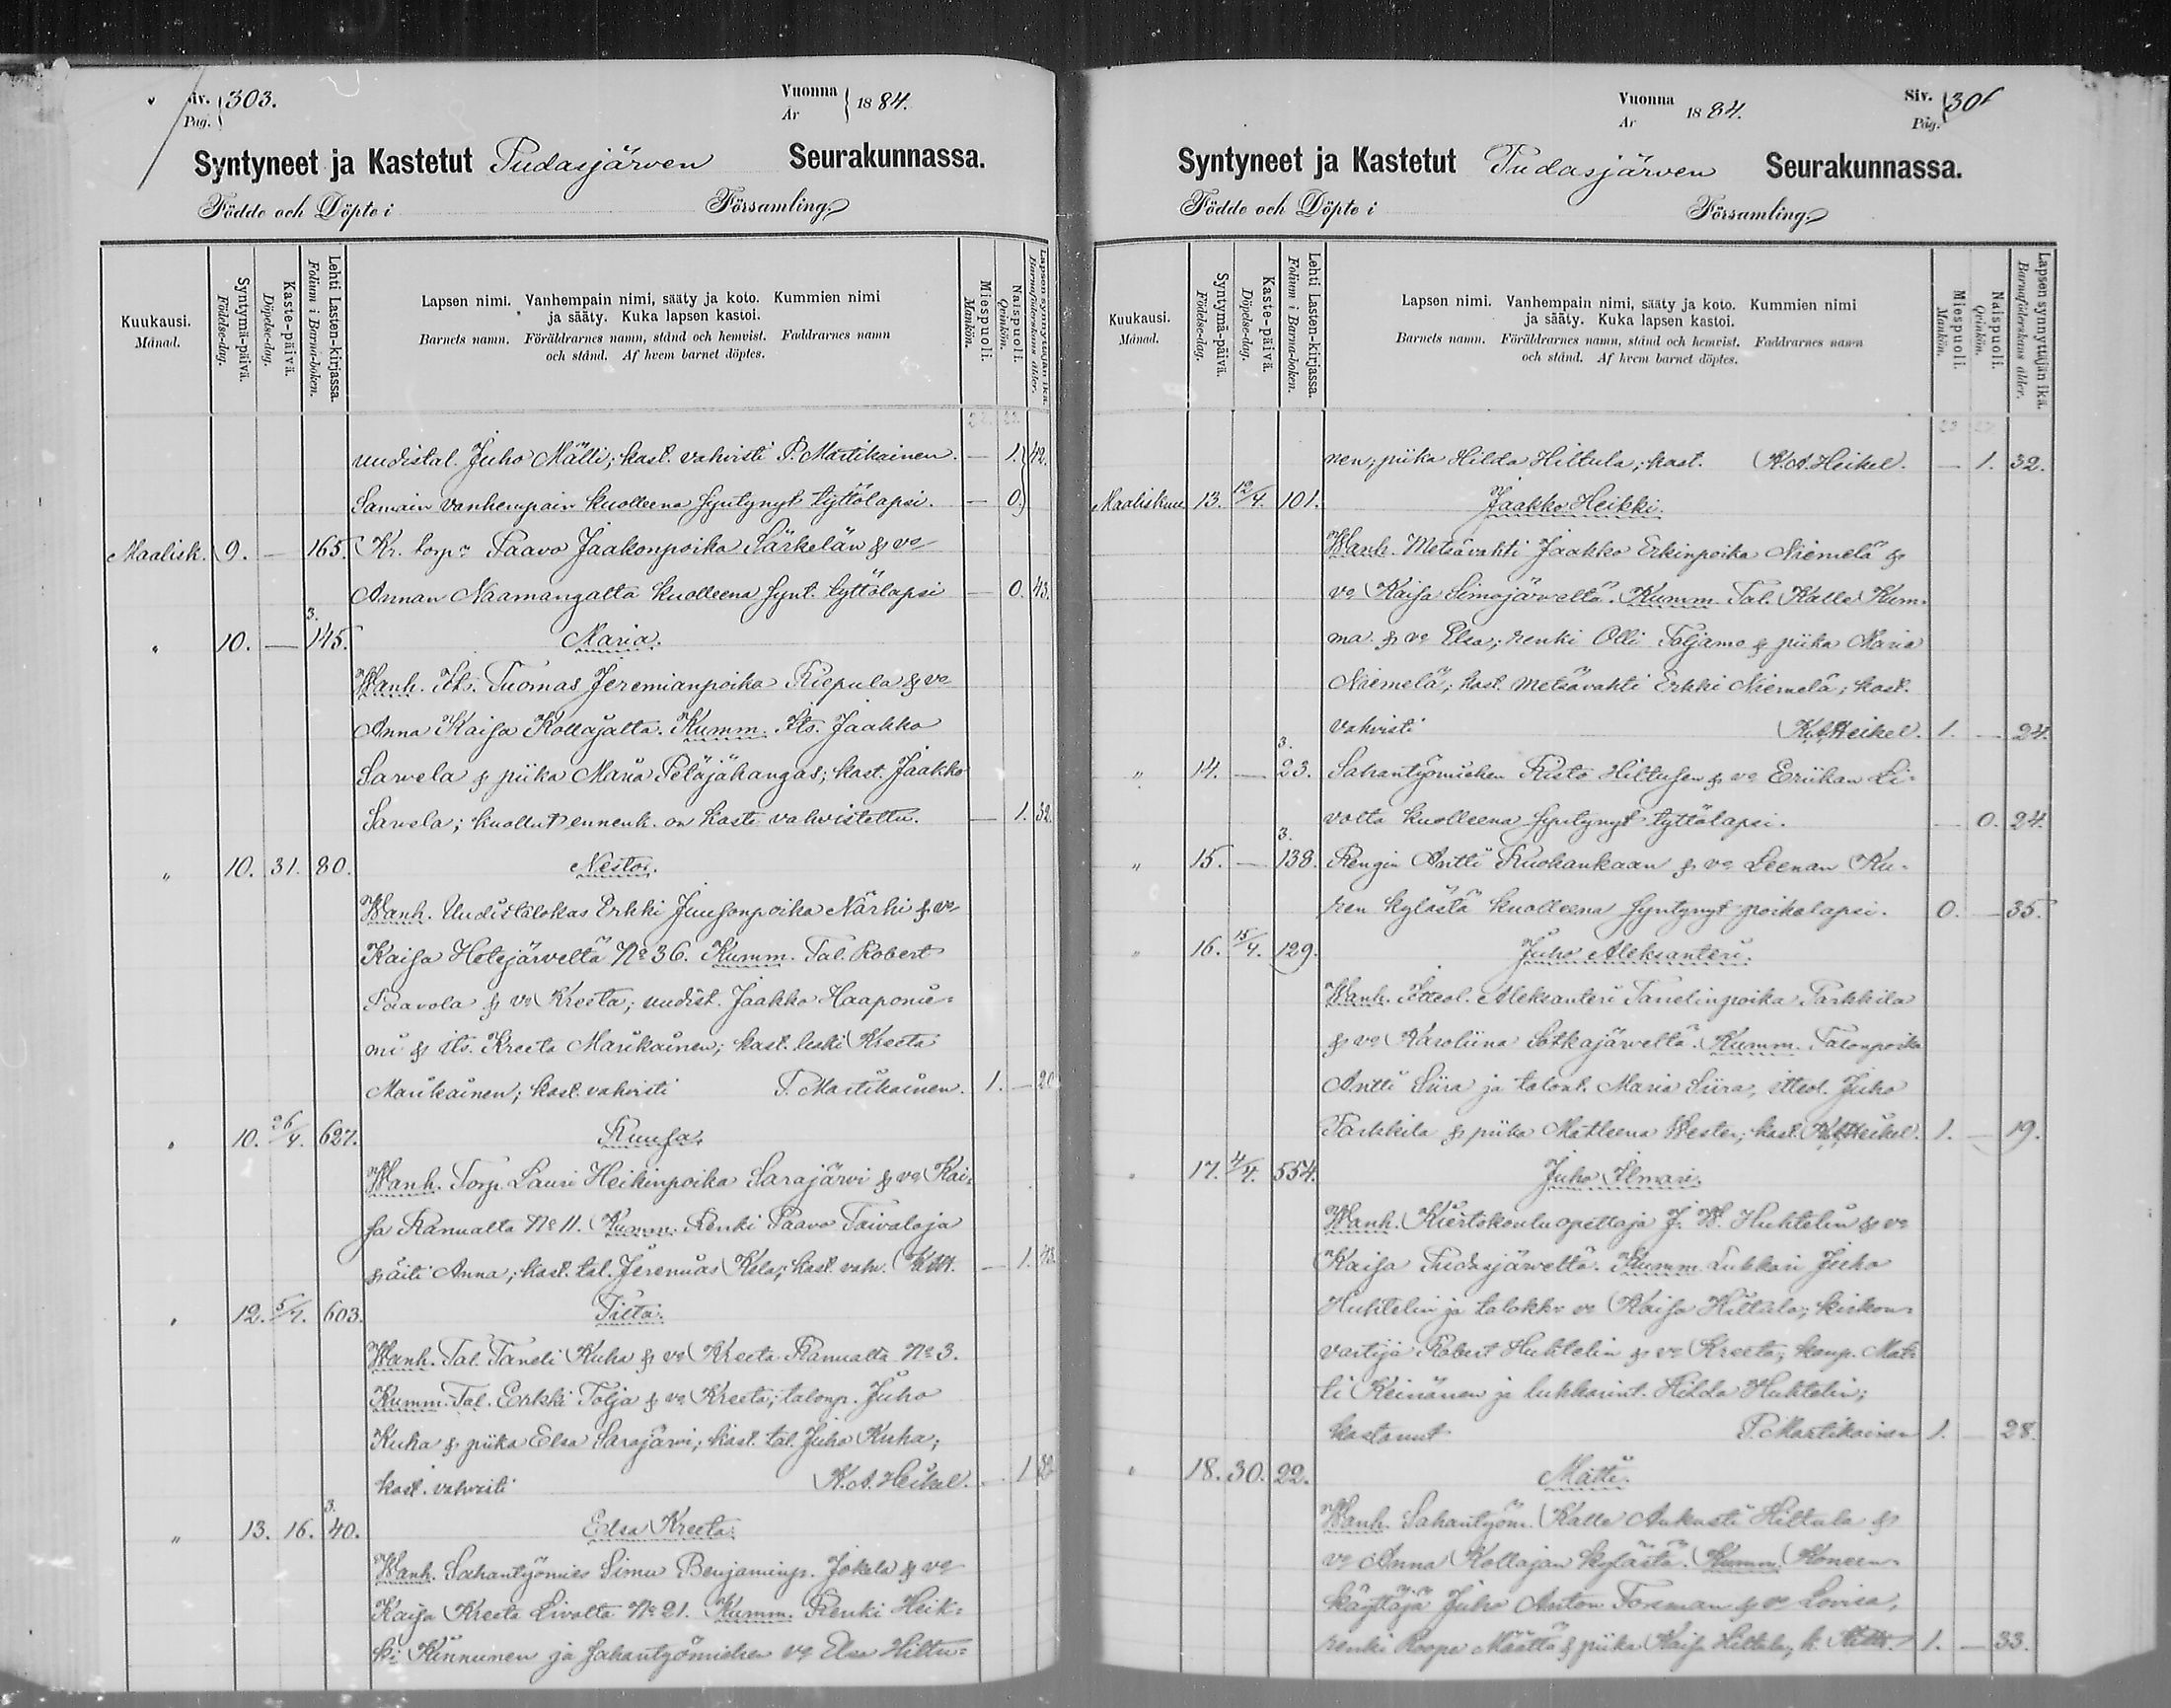 Siv. 303.
Pag.
Vuonna 1884.
År
Syntyneet ja Kastetut Pudasjärven Seurakunnassa.
Födde och Döpte i Församling.
Kuukausi.
Månad.
Syntymä-päivä.
Födelse-dag.
Kaste-päivä.
Döpelse-dag.
Lehti Lasten-kirjassa.
Folium i Barna-boken.
Lapsen nimi. Vanhempain nimi, sääty ja koto. Kummien nimi
ja sääty. Kuka lapsen kastoi.
Barnets namn. Föräldrarnes namn, stånd och hemvist. Faddrarnes namn
och stånd. Af hvem barnet döptes.
Miespuoli.
Mankön.
Naispuoli.
Qvinkön.
Lapsen synnyttäjän ikä.
Barnaföderskans ålder.
uudistal. Juho Mälli; kast. vahvisti P. Martikainen. — 1. 42.
Samain vanhempain kuolleena syntynyt tyttölapsi. — 0.
Maalisk. 9. — 165. Kr. torp. Paavo Jaakonpoika Särkelän & vo
Annan Naamangalta kuolleena synt. tyttölapsi — 0. 43.
3.
" 10. — 145. Maria.
Wanh. Its. Tuomas Jeremianpoika Riepula & vo
Anna Kaisa Kollajalta. Kumm. Its. Jaakko
Sarvela & piika Maria Petäjäkangas; kast. Jaakko
Sarvela; kuollut ennenk. on kaste vahvistettu. — 1. 32.
" 10. 31. 80. Nestor.
Wanh. Uudistalokas Erkki Juusonpoika Närhi & vo
Kaisa Hetejärveltä No 36. Kumm. Tal. Robert
Paavola & vo Kreeta; uudist. Jaakko Haaponie-
mi & its. Kreeta Marikainen; kast. leski Kreeta
Marikainen; kast. vahvisti P. Martikainen. 1. —
" 10. 26/4. 627. Ruusa.
Wanh. Torp. Lauri Heikinpoika Sarajärvi & vo Kai-
sa Ranualta No 11. Kumm. Renki Paavo Taivaloja
& äiti Anna; kast. tal. Jeremias Kela; kast. vahv. — 1.
" 12. 5/4. 603. Tilta.
Wanh. Tal. Taneli Kuha & vo Kreeta Ranualta No 3.
Kumm. Tal. Erkki Tolja & vo Kreeta; talonp. Juho
Kuha & piika Elsa Sarajärvi; kast. tal. Juho Kuha;
kast. vahvisti K. A. Heikel. — 1
3.
" 13. 16. 40. Elsa Kreeta.
Wanh. Sahantyömies Simu Benjaminp. Jokela & vo
Kaisa Kreeta Livolta No 21. Kumm. Renki Heik-
ki Kinnunen ja sahantyömiehen vo Elsa Hiltu-
Vuonna 1884.
År
Siv.
Pag.
Syntyneet ja Kastetut Pudasjärven Seurakunnassa.
Födde och Döpte i Församling.
Kuukausi.
Månad.
Syntymä-päivä.
Födelse-dag.
Kaste-päivä.
Döpelse-dag.
Lehti Lasten-kirjassa.
Folium i Barna-boken.
Lapsen nimi. Vanhempain nimi, sääty ja koto. Kummien nimi
ja sääty. Kuka lapsen kastoi.
Barnets namn. Föräldrarnes namn, stånd och hemvist. Faddrarnes namn
och stånd. Af hvem barnet döptes.
Miespuoli.
Mankön.
Naispuoli.
Qvinkön.
Lapsen synnyttäjän ikä.
Barnaföderskans ålder.
nen; piika Hilda Hiltula; kast. K. A. Heikel. — 1. 32.
Maaliskuu 13. 12/4. 101. Jaakko Heikki.
Wanh. Metsävahti Jaakko Erkinpoika Niemelä &
vo Kaisa Simojärveltä. Kumm. Tal. Kalle Kum-
ma & vo Elsa; renki Olli Toljamo & piika Maria
Niemelä; kast. metsävahti Erkki Niemelä; kast.
vahvisti K. A. Heikel. 1. — 24.
3.
" 14. — 23. Sahantyömiehen Risto Hiltusen & vo Eriikan Li-
volta kuolleena syntynyt tyttölapsi. — 0. 24.
3.
" 15. — 138. Rengin Antti Ruokankaan & vo Leenan Ku-
ren kylästä kuolleena syntynyt poikalapsi. 0. — 35.
" 16. 15/4. 129. Juho Aleksanteri.
Wanh. Itteol. Aleksanteri Tanelinpoika Parkkila
& vo Karoliina Sotkajärveltä. Kumm. Talonpoika
Antti Siira ja talont. Maria Siira, itteol. Juho
Parkkila & piika Matleena Wester; kast. K. A. Heikel. 1. — 19.
" 17. 4/4. 554. Juho Ilmari.
Wanh. Kiertokoulu opettaja J. W. Huhtelin & vo
Kaisa Pudasjärveltä. Kumm. Lukkari Juho
Huhtelin ja talokkn vo Kaisa Hiltula; kirkon-
vartija Robert Huhtelin & vo Kreeta; kaup. Mat-
ti Keinänen ja lukkarint. Hilda Huhtelin;
kastanut P. Martikainen 1. — 28.
" 18. 30. 22. Matti.
Wanh. Sahantyöm. Kalle Aukusti Hiltula &
vo Anna Kollajan kylästä. Kumm. Koneen-
käyttäjä Juho Anton Forsman & vo Lovisa,
renki Roope Määttä & piika Kaisa Hiltula; k. 1. — 33.